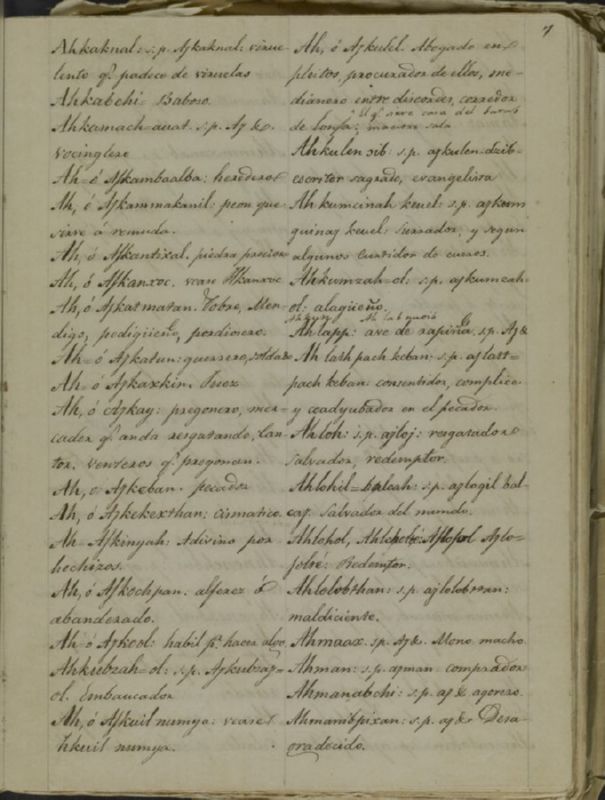 7
Ahkaknal: s.p. Ajkaknal: virue-
lento q.e padece de viruelas
Ahkabchi= Baboso.
Ahkamach=auat. s.p. Aj &.
vocinglero
Ah= ó Ajkambaalba: heredero
Ah, ó Ajkammakanil: peon que
sirve á remuda.
Ah, ó Ajkantixal. piedra precios
Ah, ó Ajkanxoc. vease Hkanxoc
Ah, ó Ajkatmatan. Pobre, Men-
digo, pedigüeño, pordiosero.
Ah= ó Ajkatun: guerrero, soldado
Ah= ó Ajkaxkin. Juez
Ah, ó Ajkay: pregonero, mer-
cader q.e anda resgatando, Can-
tor. venteros q.e pregonan.
Ah, ó Ajkeban. pecador
Ah, ó Ajkekexthan: cismatico
Ah= Ajkinyah: Adivino por
hechizos.
Ah, ó Ajkochpan. alferez ó
abanderado.
Ah= ó Ajkool: habil p.a hacer algo
Ahkubzah=ol: s.p. Ajkubzaj=
ol. Embaucador
Ah, ó Ajkuil numya: vease
hkuil numya.
Ah, ó Ajkulel. Abogado en
pleitos, procurador de ellos, me-
dianero entre discordes, corredor
de lonja; El q.e sirve casa del
maestre sala
Ahkulen ɔib: s.p. ajkulen-dzib=
escritor sagrado, evangelista
Ah kumcinah keuel: s.p. ajkum
quinaj keuel: surrador, y segun
algunos curtidor de cueros.
Ahkumzah=ol: s.p. ajkumcah-
ol: alagüeño.
Ahlapp: ave de rapiña. s.p. Aj &
Ah lath pach keban: s.p. ajlatt=
pach keban: consentidor, complice
y coadyubador en el pecador.
Ahloh: s.p. ajloj: resgatador
salvador, redemptor.
Ahlohil=balcah: s.p. ajlogil bal
caj. Salvador del mundo.
Ahlohol, Ajlo=
Redemtor.
Ahlolobthan: s.p. ajlolobttan:
maldiciente.
Ahmaax. sp. Aj &. Mono macho
Ahman: s.p. ajman comprador
Ahmanabchi: s.p. aj & agorero.
Ahmamibpixan: s.p. aj & Desa-
gradecido.